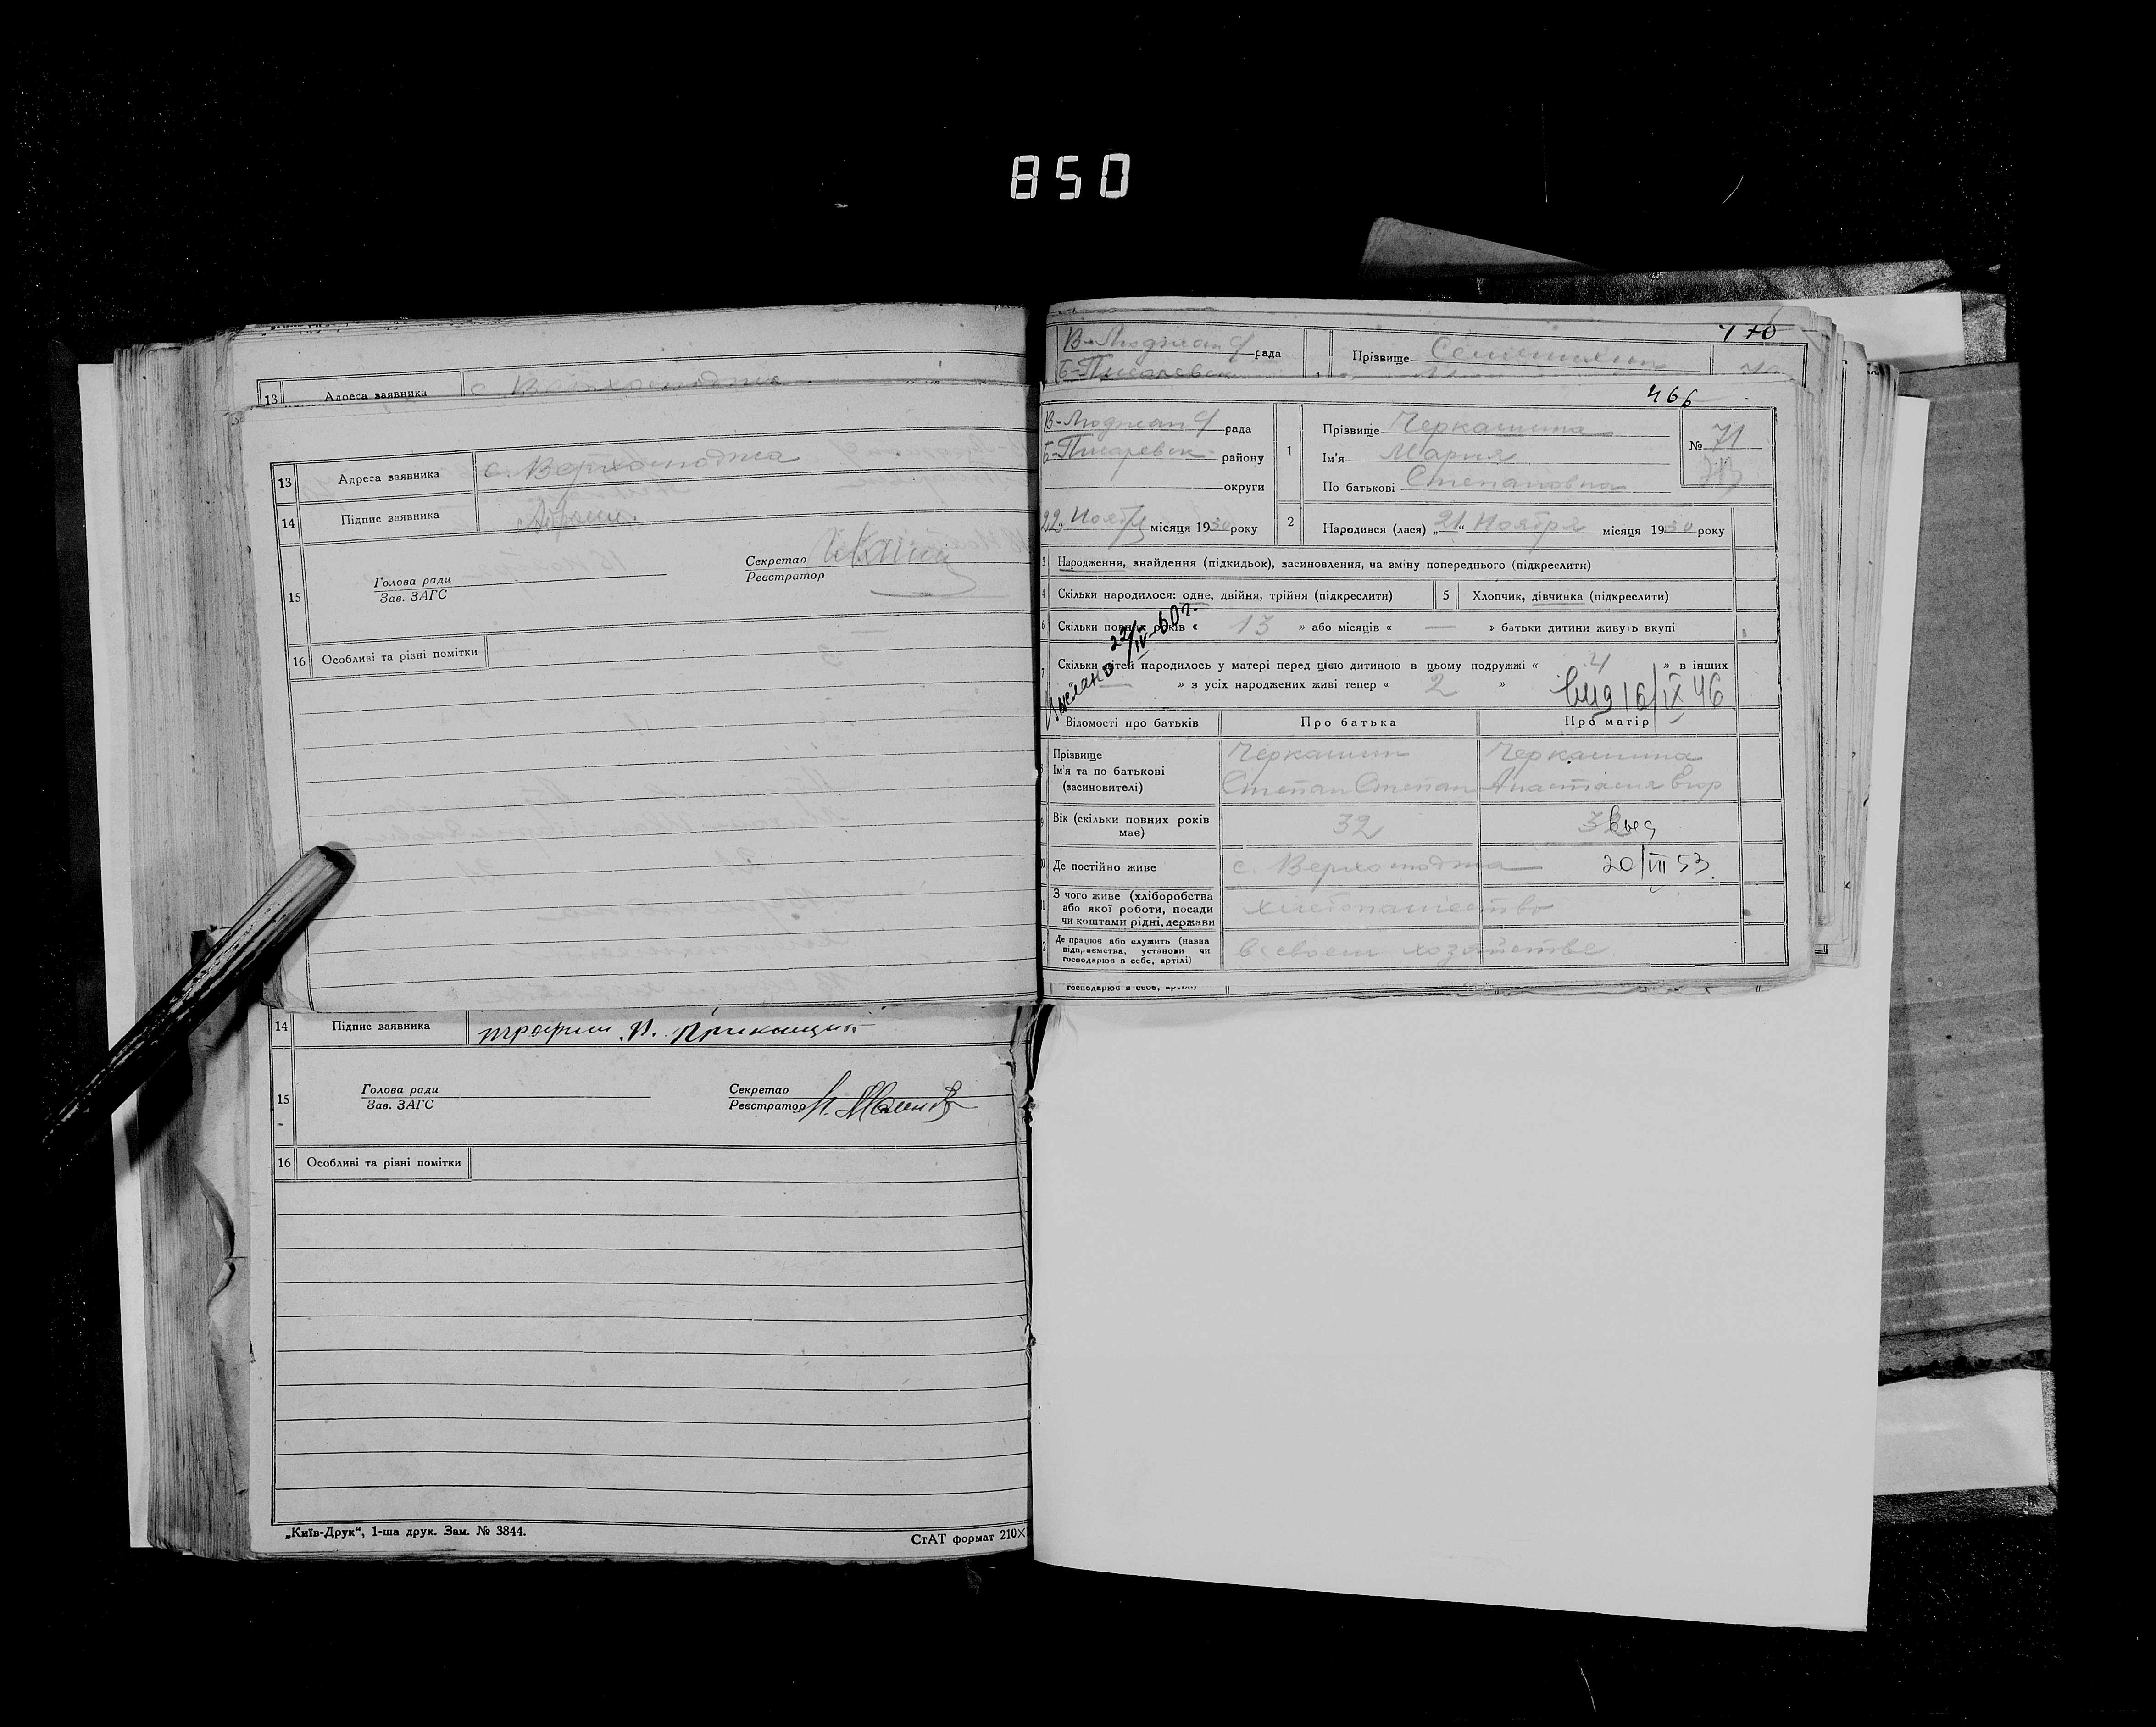 850
13 Адреса заявника
13 Адреса заявника с. Верхолюджа
14 Підпис заявника
15 Голова ради
Зав. ЗАГС
Секретар
Реєстратор
16 Особливі та різні помітки
14 Підпис заявника трофим И.
15 Голова ради
Зав. ЗАГС
Секретар
Реєстратор
16 Особливі та різні помітки
„Київ-Друк“, 1-ша друк. Зам. № 3844.
СтАТ формат 210×
470
В-Люджан с/рада
Б-Писаревск
Прізвище
466
В-Люджан с/рада
Б-Писаревск району
округи
22 Ноября місяця 1930 року
1 Прізвище Черкашина
Ім'я Мария
По батькові Степановна
№ 71
2 Народився (лася) „21“ Ноября місяця 1930 року
3 Народження, знайдення (підкидьок), засиновлення, на зміну попереднього (підкреслити)
4 Скільки народилося: одне, двійня, трійня (підкреслити)
5 Хлопчик, дівчинка (підкреслити)
6 Скільки повних років « 13 » або місяців « — » батьки дитини живуть вкупі
7 Скільки дітей народилось у матері перед цією дитиною в цьому подружжі « 4 » в інших
— » з усіх народжених живі тепер « 2 »
Выслано 22/IV-60г.
16/IX 46
Відомості про батьків
Про батька
Про матір
8 Прізвище
Ім'я та по батькові
(засиновителі)
Черкашин
Степан Степан
Черкашина
Анастасия Егор
9 Вік (скільки повних років
має)
32
10 Де постійно живе с. Верхолюджа
20/VII 53.
11 З чого живе (хліборобства
або якої роботи, посади
чи коштами рідні, держави
хлебопашество
12 Де працює або служить (назва
підприємства, установи чи
господарює в себе, артілі)
в своем хозяйстве
господарює в себе, артілі)